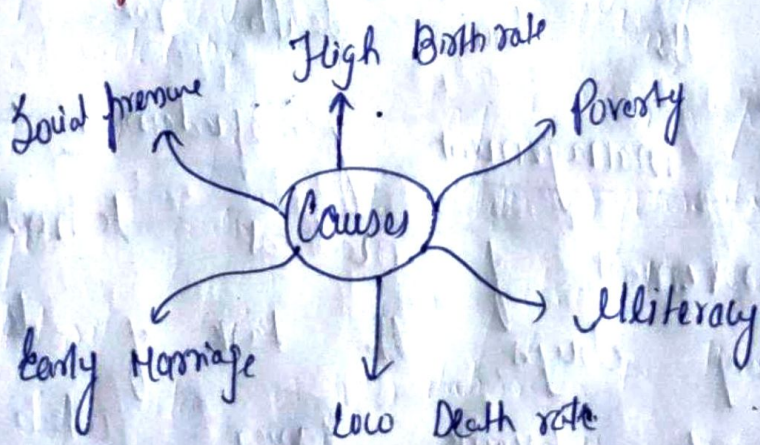 High Birth rate
Social pressure
Poverty
Causes
Early Marriage
Illiteracy
Low Death rate